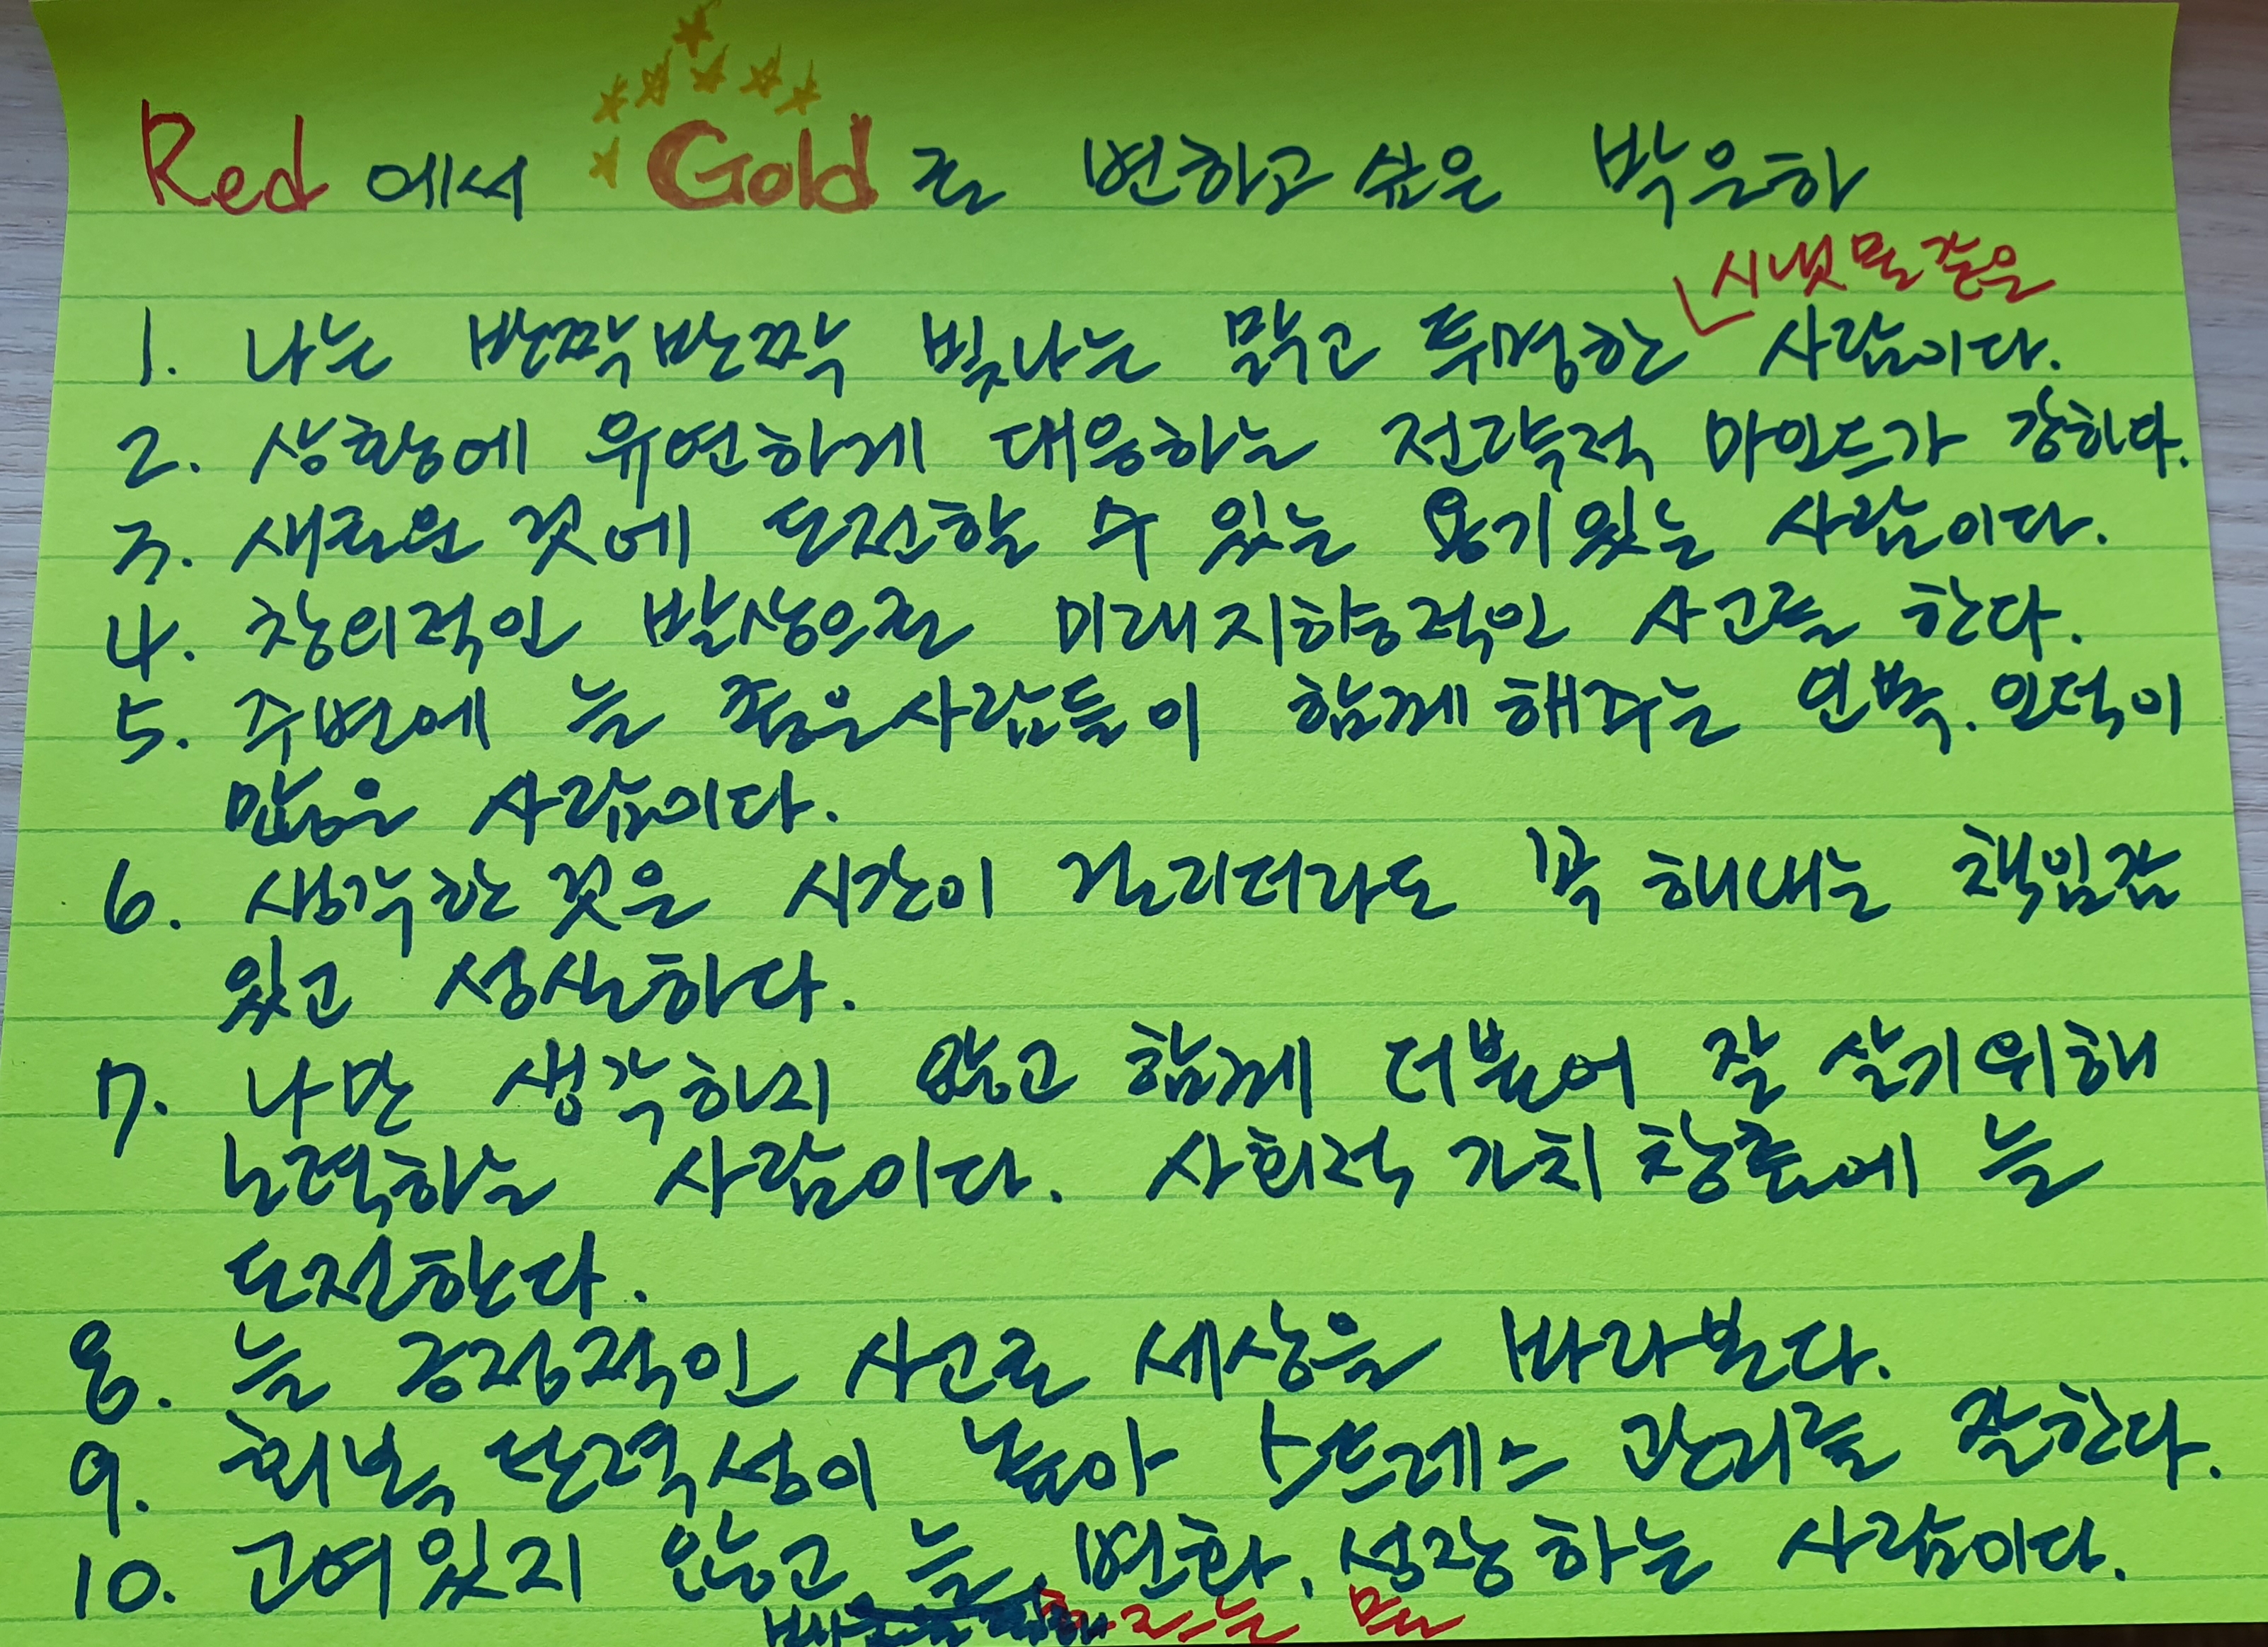 Red에서 Gold로 변하고 싶은 박은하
시냇물 같은
1. 나는 반짝반짝 빛나는 맑고 투명한 사람이다.
2. 상황에 유연하게 대응하는 전략적 마인드가 강하다.
3. 새로운 것에 도전할 수 있는 용기있는 사람이다.
4. 창의적인 발상으로 미래지향적인 사고를 한다.
5. 주변에 늘 좋은사람들이 함께해주는 인복.인덕이
많은 사람이다.
6. 생각한 것은 시간이 걸리더라도 꼭 해내는 책임감
있고 성실하다.
7. 나만 생각하지 않고 함께 더불어 잘 살기위해
노력하는 사람이다. 사회적 가치창출에 늘
도전한다.
8. 늘 긍정적인 사고로 세상을 바라본다.
9. 회복 탄력성이 높아 스트레스 관리를 잘한다.
10. 고여있지 않고 늘 변화, 성장하는 사람이다.
흐르는 물